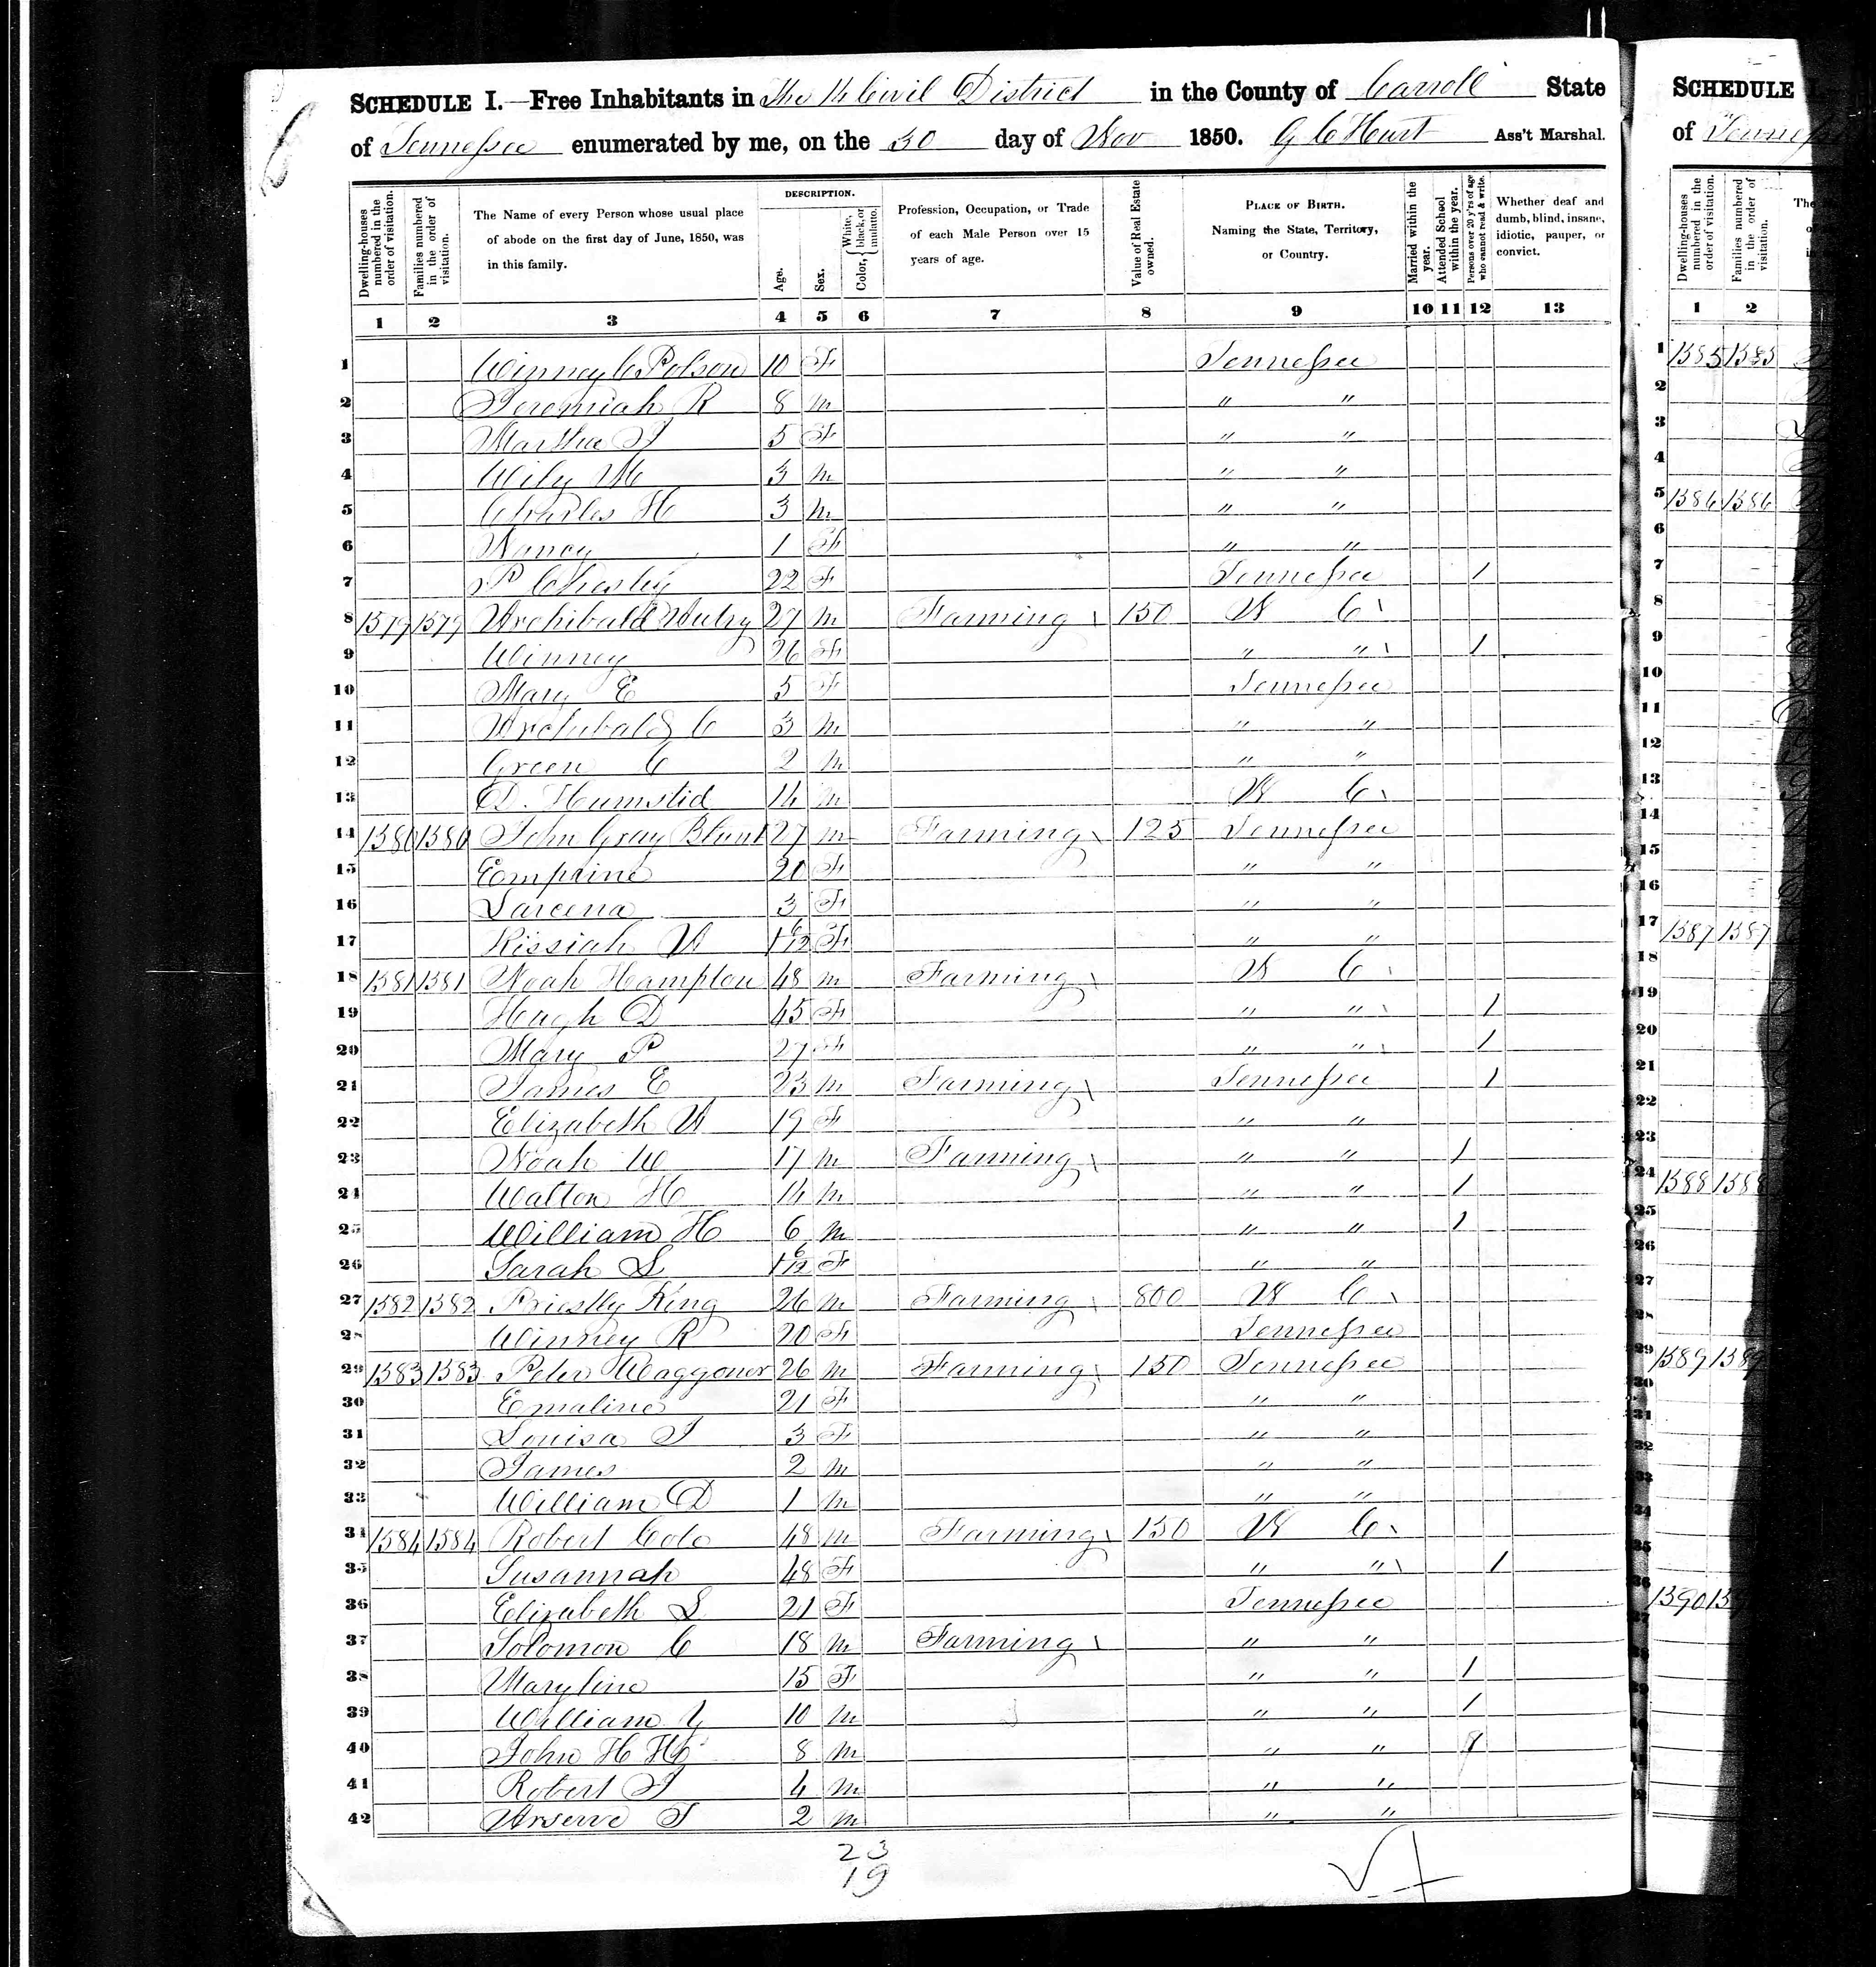 SCHEDULE I.—Free Inhabitants in The 14 Civil District in the County of Carroll State
of Tennessee enumerated by me, on the 30 day of Nov 1850. G C Hurt Ass't Marshal.
Dwelling-houses numbered in the order of visitation.
Families numbered in the order of visitation.
The Name of every Person whose usual place of abode on the first day of June, 1850, was in this family.
DESCRIPTION.
Age.
Sex.
Color, { White, black, or mulatto.
Profession, Occupation, or Trade of each Male Person over 15 years of age.
Value of Real Estate owned.
PLACE OF BIRTH. Naming the State, Territory, or Country.
Married within the year.
Attended School within the year.
Persons over 20 y'rs of age who cannot read & write.
Whether deaf and dumb, blind, insane, idiotic, pauper, or convict.
1 2 3 4 5 6 7 8 9 10 11 12 13
1 Winney C Polson 10 F Tennessee
2 Jeremiah R 8 M " "
3 Martha J 5 F " "
4 Wily M 3 M " "
5 Charles H 3 M " "
6 Nancy 1 F " "
7 P 22 F Tennessee 1
8 1579 1579 Archibald Autry 27 M Farming 150 N C
9 Winney 26 F " " 1
10 Mary E 5 F Tennessee
11 Archibald C 3 M " "
12 Green C 2 M " "
13 D. Humstid 14 M N C
14 1580 1580 John Gray Blunt 27 M Farming 125 Tennessee
15 20 F " "
16 3 F " "
17 Kissiah A 6/12 F " "
18 1581 1581 Noah Hampton 48 M Farming N C
19 Hugh D 45 F " " 1
20 Mary P 27 F " " 1
21 James E 23 M Farming Tennessee 1
22 Elizabeth A 19 F " "
23 Noah W 17 M Farming " " 1
24 Walton H 14 M " " 1
25 William H 6 M " " 1
26 Sarah L 6/12 F " "
27 1582 1582 Priestly King 26 M Farming 800 N C
28 Winney R 20 F Tennessee
29 1583 1583 Peter Waggoner 26 M Farming 150 Tennessee
30 Emaline 21 F " "
31 Louisa J 3 F " "
32 James 2 M " "
33 William D 1 M " "
34 1584 1584 Robert Cole 48 M Farming 150 N C
35 Susannah 48 F " " 1
36 Elizabeth L 21 F Tennessee
37 Solomon C 18 M Farming " "
38 Maryline 15 F " " 1
39 William Y 10 M " " 1
40 John H 8 M " " 1
41 Robert J 4 M " "
42 2 M " "
23
19
SCHEDULE I.
of Tennes
Dwelling-houses numbered in the order of visitation.
Families numbered in the order of visitation.
1 2
1 1585 1585
5 1586 1586
17 1587 1587
24 1588 1588
29 1589 1589
36 1590